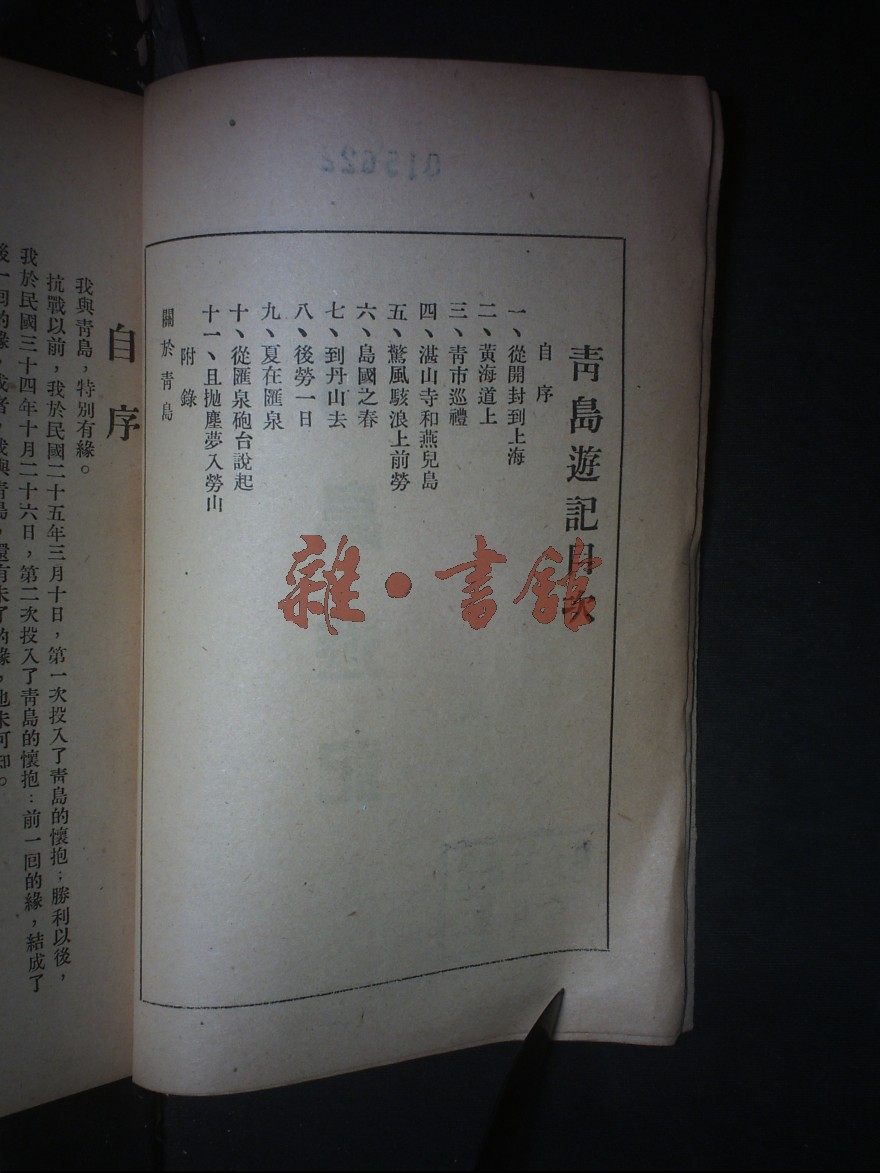 015622
靑島遊記目次
自序
一、從開封到上海
二、黃海道上
三、靑市巡禮
四、湛山寺和燕兒島
五、驚風駭浪上前勞
六、島國之春
七、到丹山去
八、後勞一日
九、夏在匯泉
十、從匯泉砲台說起
十一、且拋塵夢入勞山
附錄
關於靑島
雜·書館
自序
我與靑島，特別有緣。
抗戰以前，我於民國二十五年三月十日，第一次投入了靑島的懷抱；勝利以後，
我於民國三十四年十月二十六日，第二次投入了靑島的懷抱：前一回的緣，結成了
後一回的緣，或者，我與靑島，還有未了的緣，也未可知。